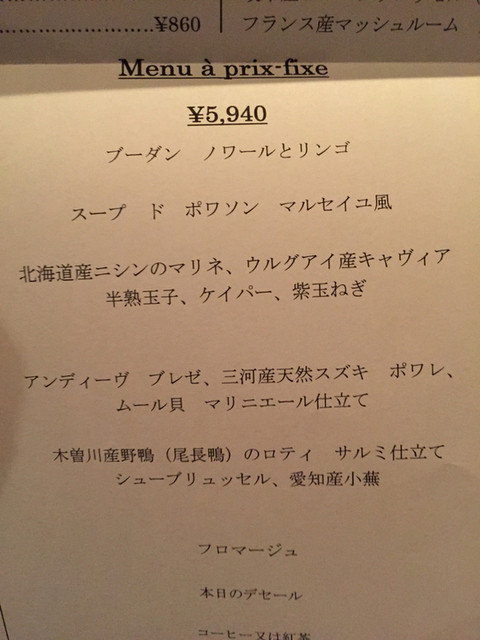 ¥860
フランス産マッシュルーム
Menu à prix-fixe
¥5,940
ブーダン　ノワールとリンゴ
スープ　ド　ポワソン　マルセイユ風
北海道産ニシンのマリネ、ウルグアイ産キャヴィア
半熟玉子、ケイパー、紫玉ねぎ
アンディーヴ　ブレゼ、三河産天然スズキ　ポワレ、
ムール貝　マリニエール仕立て
木曽川産野鴨（尾長鴨）のロティ　サルミ仕立て
シューブリュッセル、愛知産小蕪
フロマージュ
本日のデセール
コーヒー又は紅茶